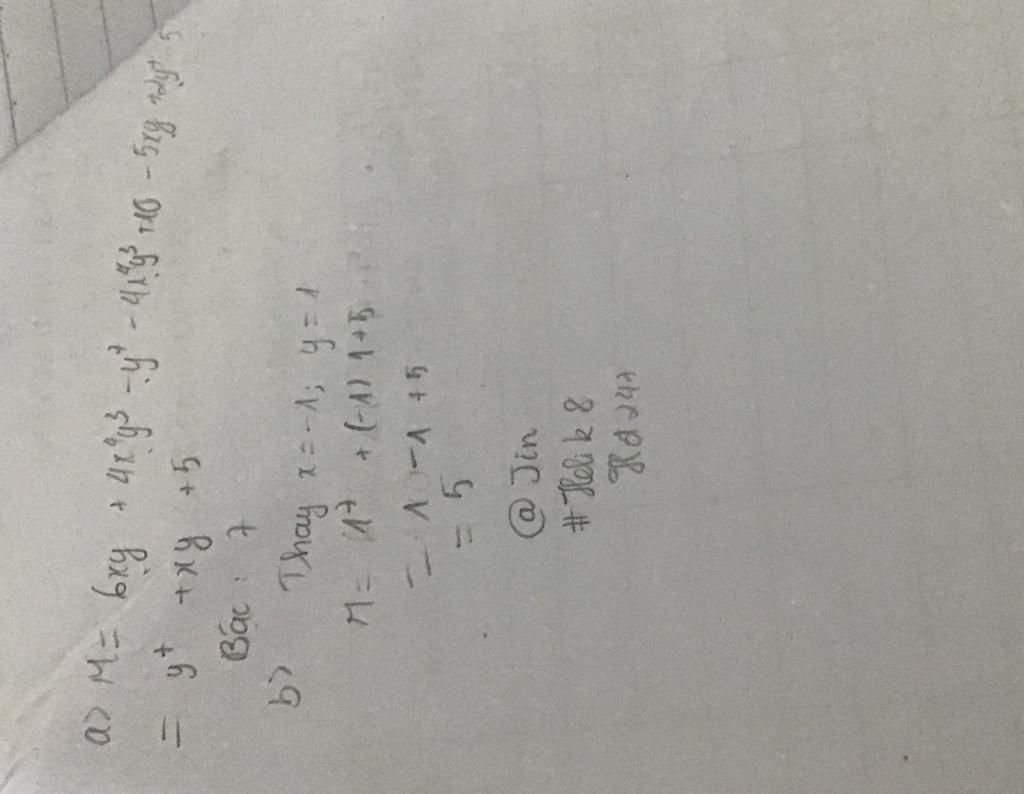 a) M = 6xy + 4x⁴y³ - y⁷ - 4x⁴y³ + 10 - 5xy + 2y⁷ - 5
= y⁷ + xy + 5
Bậc : 7
b) Thay x = -1; y = 1
M = 1⁷ + (-1) 1 + 5
= 1 - 1 + 5
= 5
@ Jin
# Heli k 8
H d 247